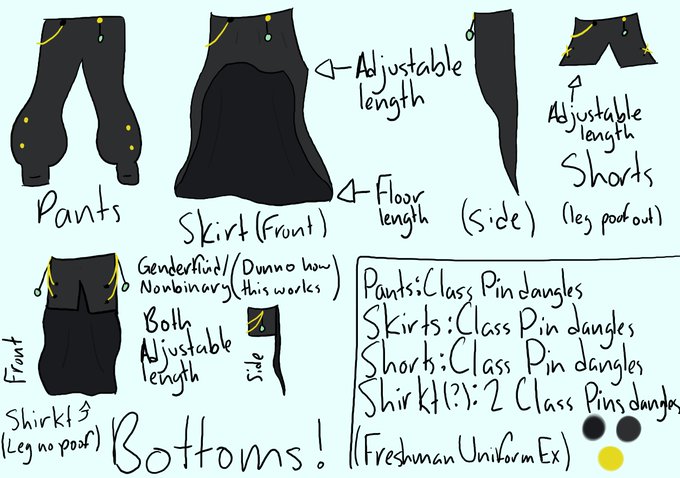 Pants
Skirt (Front)
Adjustable
length
Floor
length
(side)
Adjustable
length
Shorts
(leg poof out)
Front
Shirkt
(Leg no poof)
Genderfluid/
Nonbinary
(Dunno how
this works)
Both
Adjustable
length
Side
Bottoms!
Pants: Class Pin dangles
Skirts: Class Pin dangles
Shorts: Class Pin dangles
Shirkt(?): 2 Class Pins dangles
(Freshman Uniform Ex)